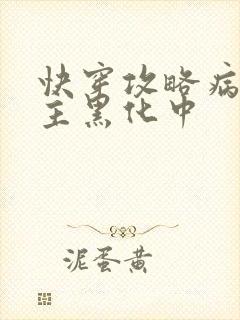 快穿攻略病
主黑化中
泥蛋黄